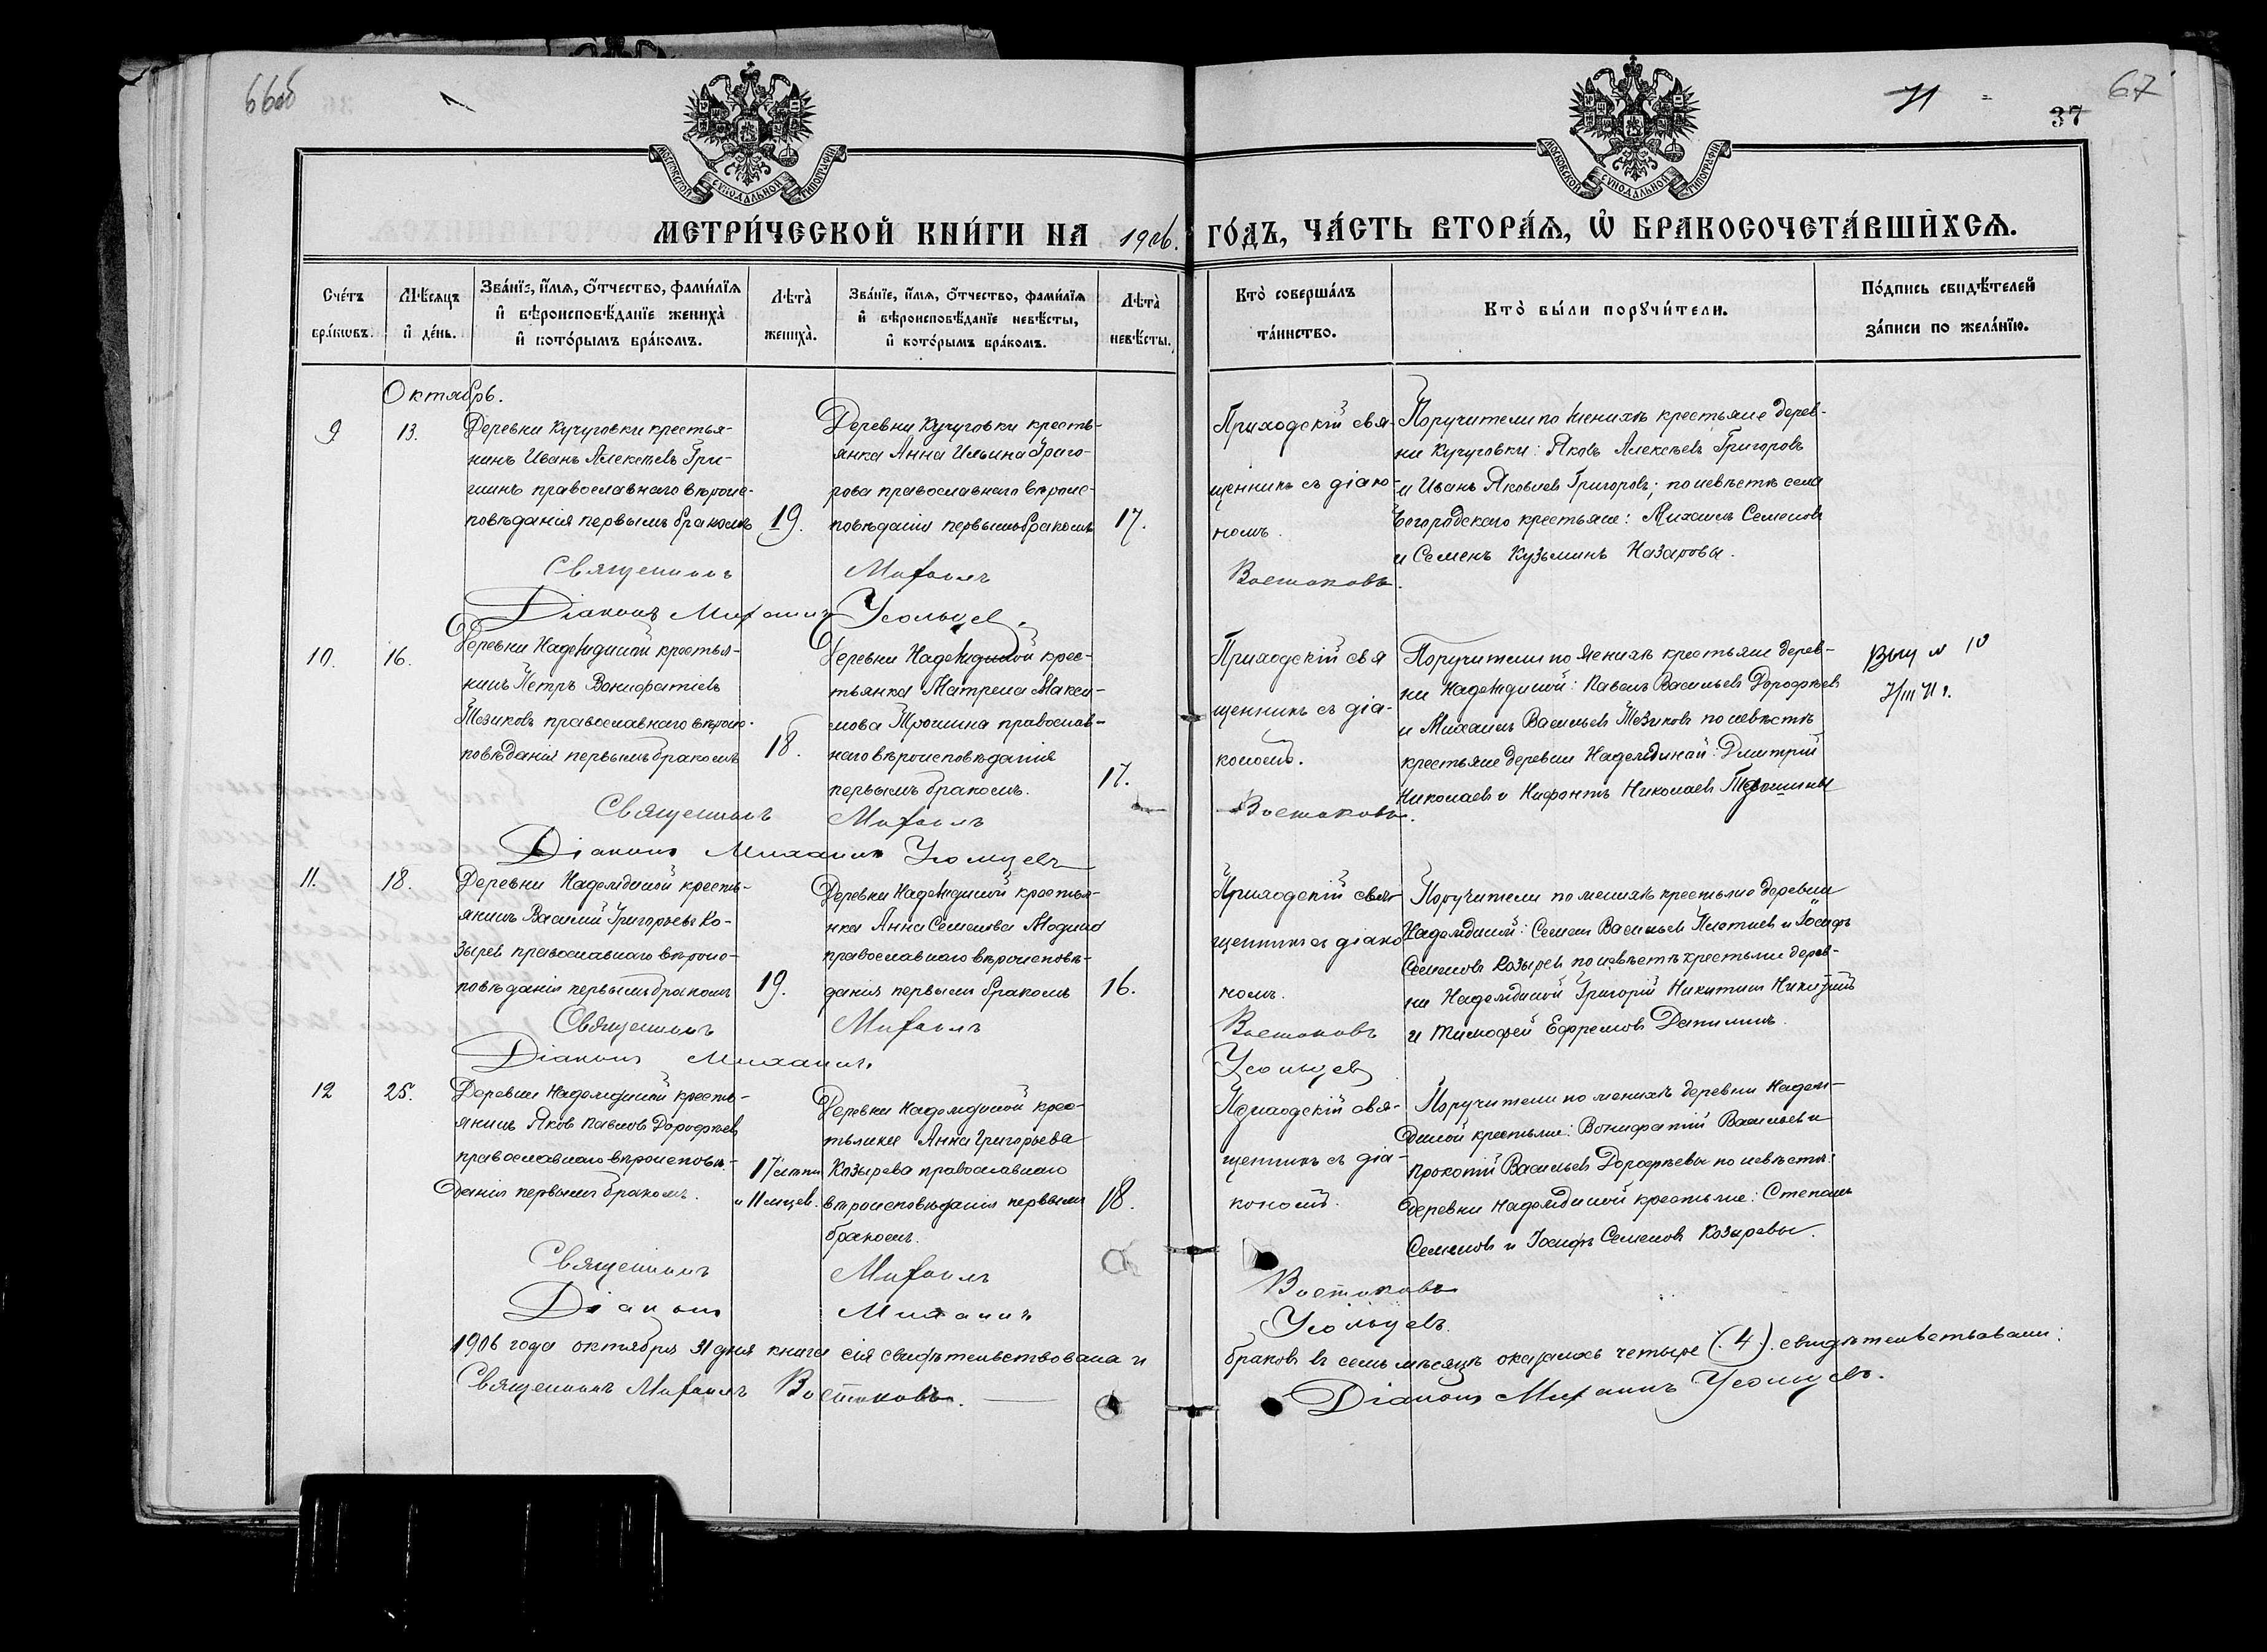 66об
71
67
37
МОСКОВСКОЙ СѴНОДАЛЬНОЙ ТИПОГРАФІИ
МОСКОВСКОЙ СѴНОДАЛЬНОЙ ТИПОГРАФІИ
МЕТРИ́ЧЕСКОЙ КНИ́ГИ НА 1906.
ГО́ДЪ, ЧА́СТЬ ВТОРА́Ѧ, Ѡ҆ БРАКОСОЧЕТА́ВШИХСѦ.
Сче́тъ
бра́ковъ.
Мѣ́сяцъ
и҆ де́нь.
Зва́нїе, и҆́мѧ, ѻ҆́тчество, фами́лїѧ
и҆ вѣроисповѣ́данїе жениха̀
и҆ кото́рымъ бра́комъ.
Лѣта̀
жениха̀.
Зва́нїе, и҆́мѧ, ѻ҆́тчество, фами́лїѧ
и҆ вѣроисповѣ́данїе невѣ́сты,
и҆ кото́рымъ бра́комъ.
Лѣта̀
невѣ́сты.
Кто̀ соверша́лъ
та́инство.
Кто̀ бы́ли порꙋчи́тели.
По́дпись свидѣ́телей
за́писи по жела́нїю.
Октябрь.
9
13.
Деревни Кучуговки крестья-
нинъ Иванъ Алексѣевъ Гри-
шинъ православнаго вѣроис-
повѣданія первымъ бракомъ
19.
Деревни Кучуговки кресть-
янка Анна Ильина Григо-
рова православнаго вѣроис-
повѣданія первымъ бракомъ
17.
Приходскій свя-
щенникъ съ діако-
номъ.
Поручители по женихѣ крестьяне дерев-
ни Кучуговки: Яковъ Алексѣевъ Григоровъ
и Иванъ Яковлевъ Григоровъ; по невѣстѣ села
Богородскаго крестьяне: Михаилъ Семеновъ
и Семенъ Кузьминъ Назаровы.
Священникъ Михаилъ Востоковъ.
Діаконъ Михаилъ Усольцевъ.
10.
16.
Деревни Надеждиной крестья-
нинъ Петръ Вонифатіевъ
Тезиковъ православнаго вѣроис-
повѣданія первымъ бракомъ
18.
Деревни Надеждиной крес-
тьянка Матрена Макси-
мова Трошина православ-
наго вѣроисповѣданія
первымъ бракомъ.
17.
Приходскій свя
щенникъ съ діа-
кономъ.
Поручители по женихѣ крестьяне дерев-
ни Надеждиной: Павелъ Васильевъ Дорофѣевъ
и Михаилъ Васильевъ Тезиковъ по невѣстѣ
крестьяне деревни Надеждиной: Дмитрій
Николаевъ и Нифонтъ Николаевъ Трошины
10
Священникъ Михаилъ Востоковъ.
Діаконъ Михаилъ Усольцевъ
11.
18.
Деревни Надеждиной кресть-
янинъ Василій Григорьевъ Ко-
зыревъ православнаго вѣроис-
повѣданія первымъ бракомъ
19.
Деревни Надеждиной крестья-
нка Анна Семенова
православнаго вѣроисповѣ-
данія первымъ бракомъ
16.
Приходскій свя-
щенникъ съ діако
номъ.
Поручители по женихѣ крестьяне деревни
Надеждиной: Семенъ Васильевъ и Іосифъ
Семеновъ Козыревъ по невѣстѣ крестьяне дерев-
ни Надеждиной Григорій Никитинъ
и Тимофей Ефремовъ Данилинъ.
Священникъ Михаилъ Востоковъ
Діаконъ Михаилъ Усольцевъ
12
25.
Деревни Надеждиной кресть-
янинъ Яковъ Павловъ Дорофѣевъ
православнаго вѣроисповѣ-
данія первымъ бракомъ.
17 лѣтъ
и 11 мцев.
Деревни Надеждиной крес-
тьянка Анна Григорьева
Козырева православнаго
вѣроисповѣданія первымъ
бракомъ.
18.
Приходскій свя-
щенникъ съ діа-
кономъ.
Поручители по женихѣ деревни Надеж-
диной крестьяне: Вонифатій Васильевъ и
Прокопій Васильевъ Дорофѣевы по невѣстѣ:
деревни Надеждиной крестьяне: Степанъ
Семеновъ и Іосифъ Семеновъ Козыревы.
Священникъ Михаилъ Востоковъ
Діаконъ Михаилъ Усольцевъ.
1906 года октября 31 дня книга сія свидѣтельствована и браковъ въ семъ мѣсяцѣ оказалось четыре (4). свидѣтельствовали:
Священникъ Михаилъ Востоковъ. Діаконъ Михаилъ Усольцевъ.